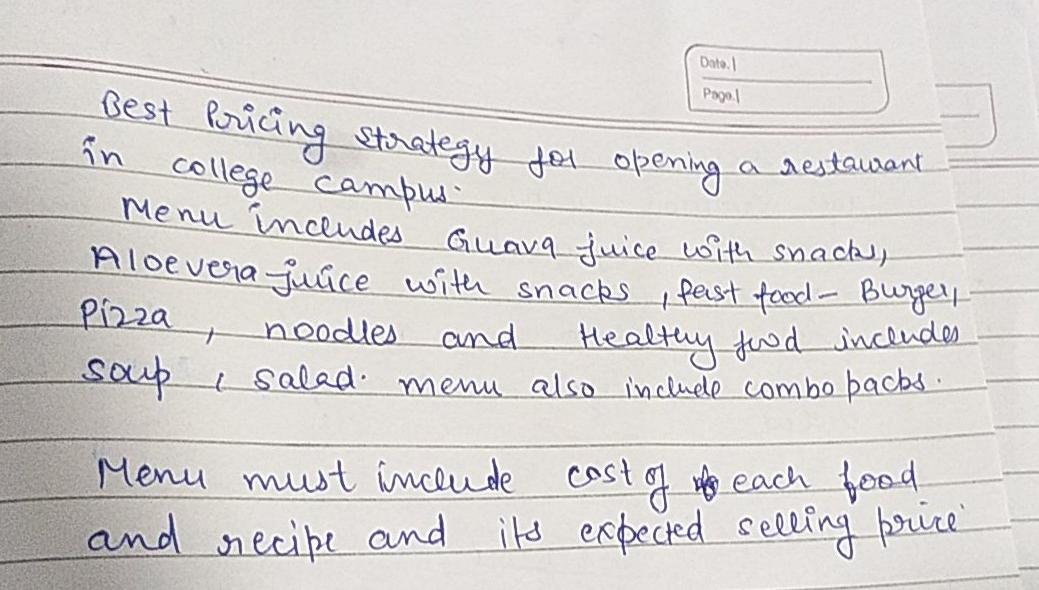 Date.
Page.
Best Pricing strategy for opening a restaurant
in college campus.
Menu includes Guava juice with snacks,
Aloevera juice with snacks, fast food - Burger,
Pizza, noodles and Healthy food includes
soup, salad. menu also include combo packs.
Menu must include cost of each food
and recipe and its expected selling price